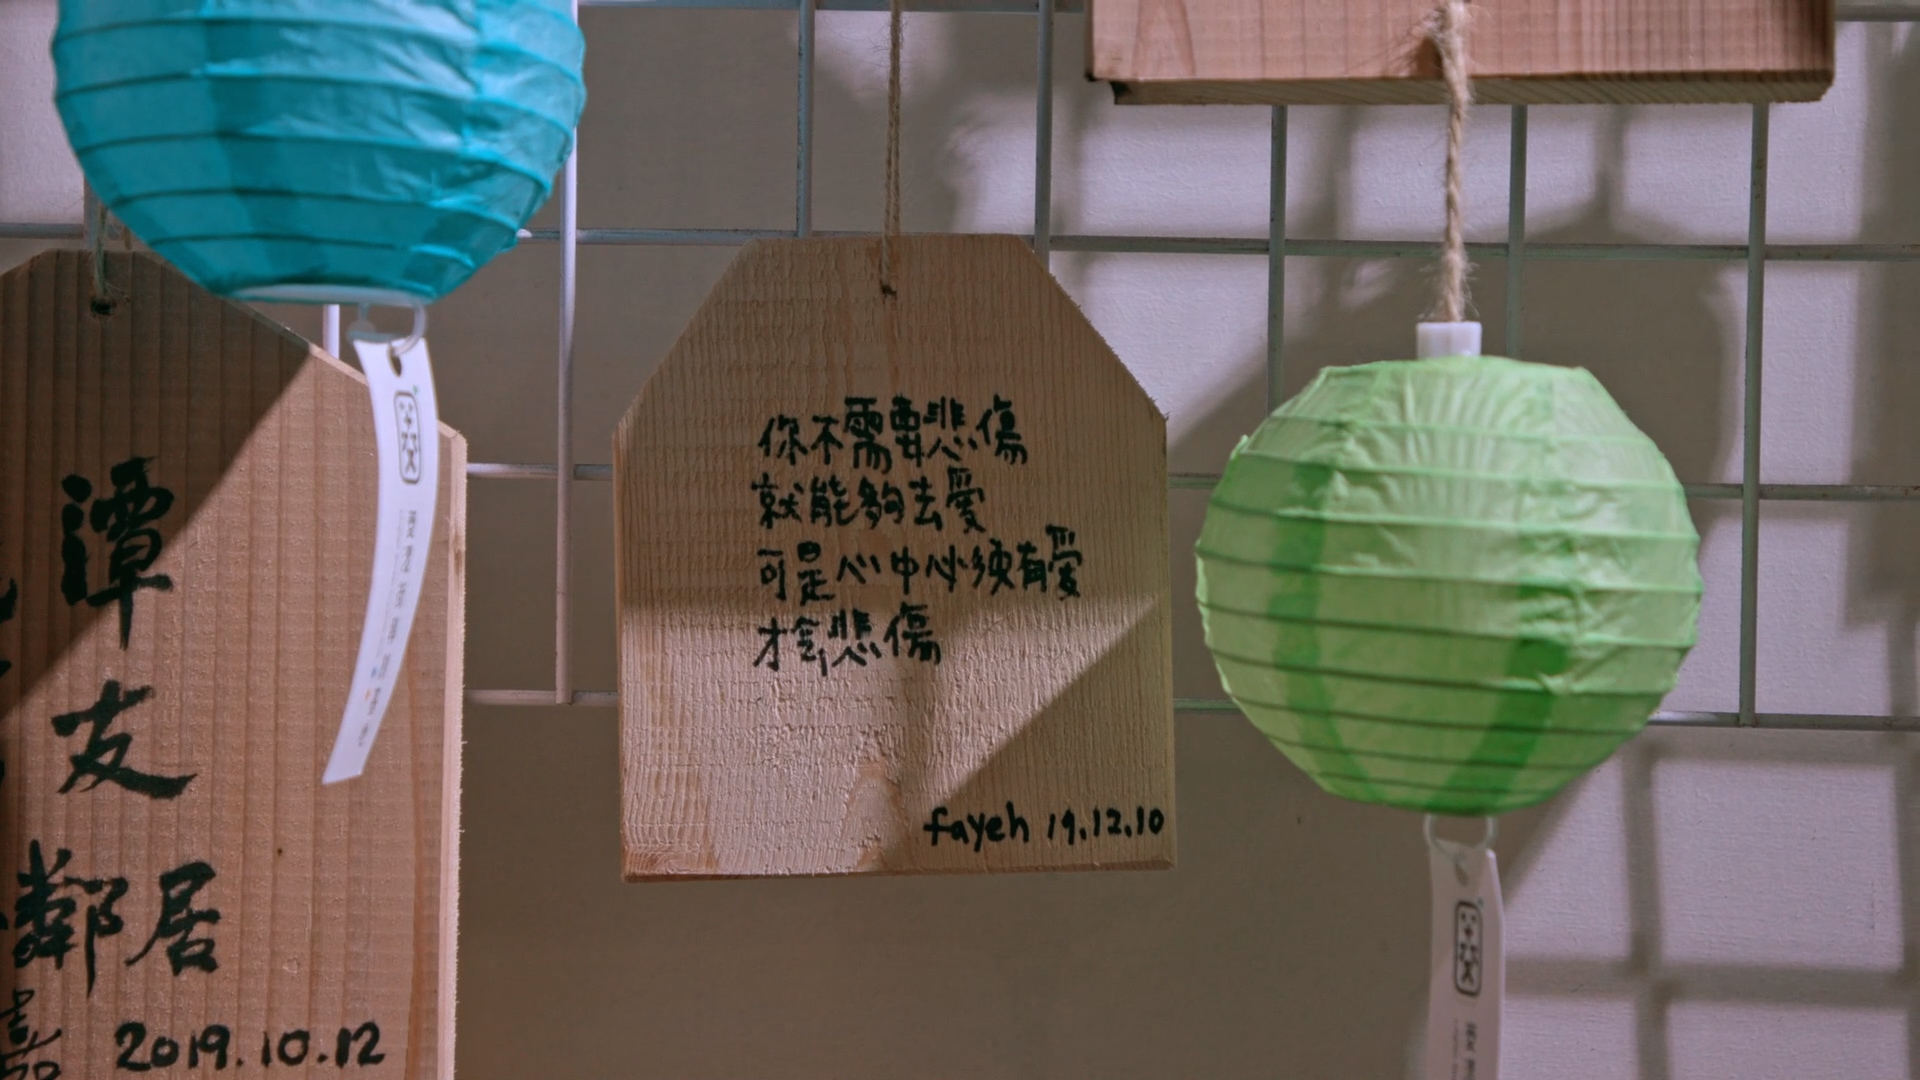 潭
友
鄰居
2019.10.12
你不需要悲傷
就能夠去愛
可是心中必須有愛
才會悲傷
fayeh 19.12.10